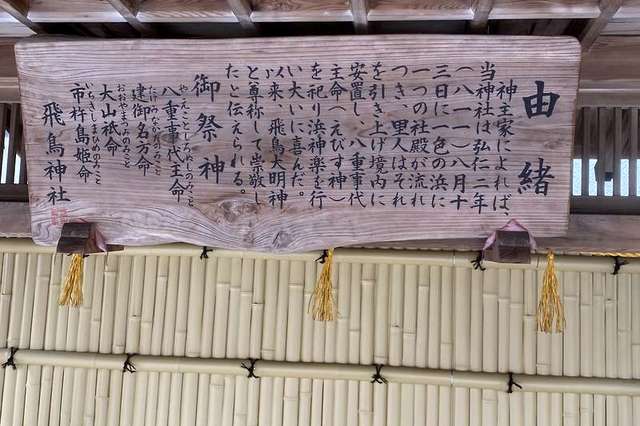 由緒
神主家によれば、
当神社は弘仁二年
（八一一）八月十
三日に一色の浜に
一つの社殿が流れ
つき、里人はそれ
を引き上げ境内に
安置し、八重事代
主命（えびす神）
を祀り浜神楽を行
い大いに喜んだ。
以来、飛鳥大明神
と尊称して崇敬し
たと伝えられる。
御祭神
やえことしろぬしのみこと
八重事代主命
たけみなかたのみこと
建御名方命
おおやまづみのみこと
大山祇命
いちきしまひめのみこと
市杵島姫命
飛鳥神社